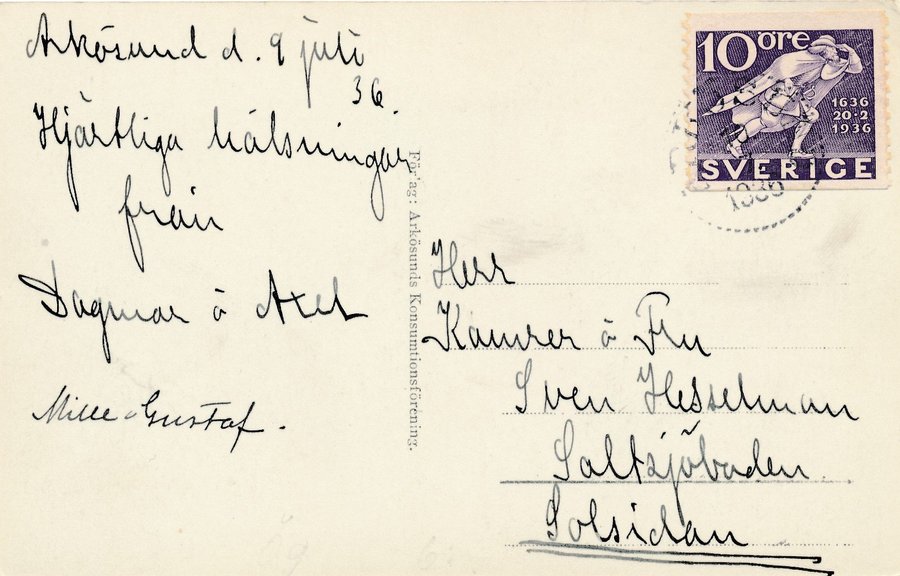 Arkösund d. 9 juli
36
Hjärtliga hälsningar
från
Dagmar å Axel
Mille o Gustaf.
Förlag: Arkösunds Konsumtionsförening.
10 öre
1636
20·2
1936
SVERIGE
1936
Herr
Kamrer å Fru
Sven Hesselman
Saltsjöbaden
Solsidan